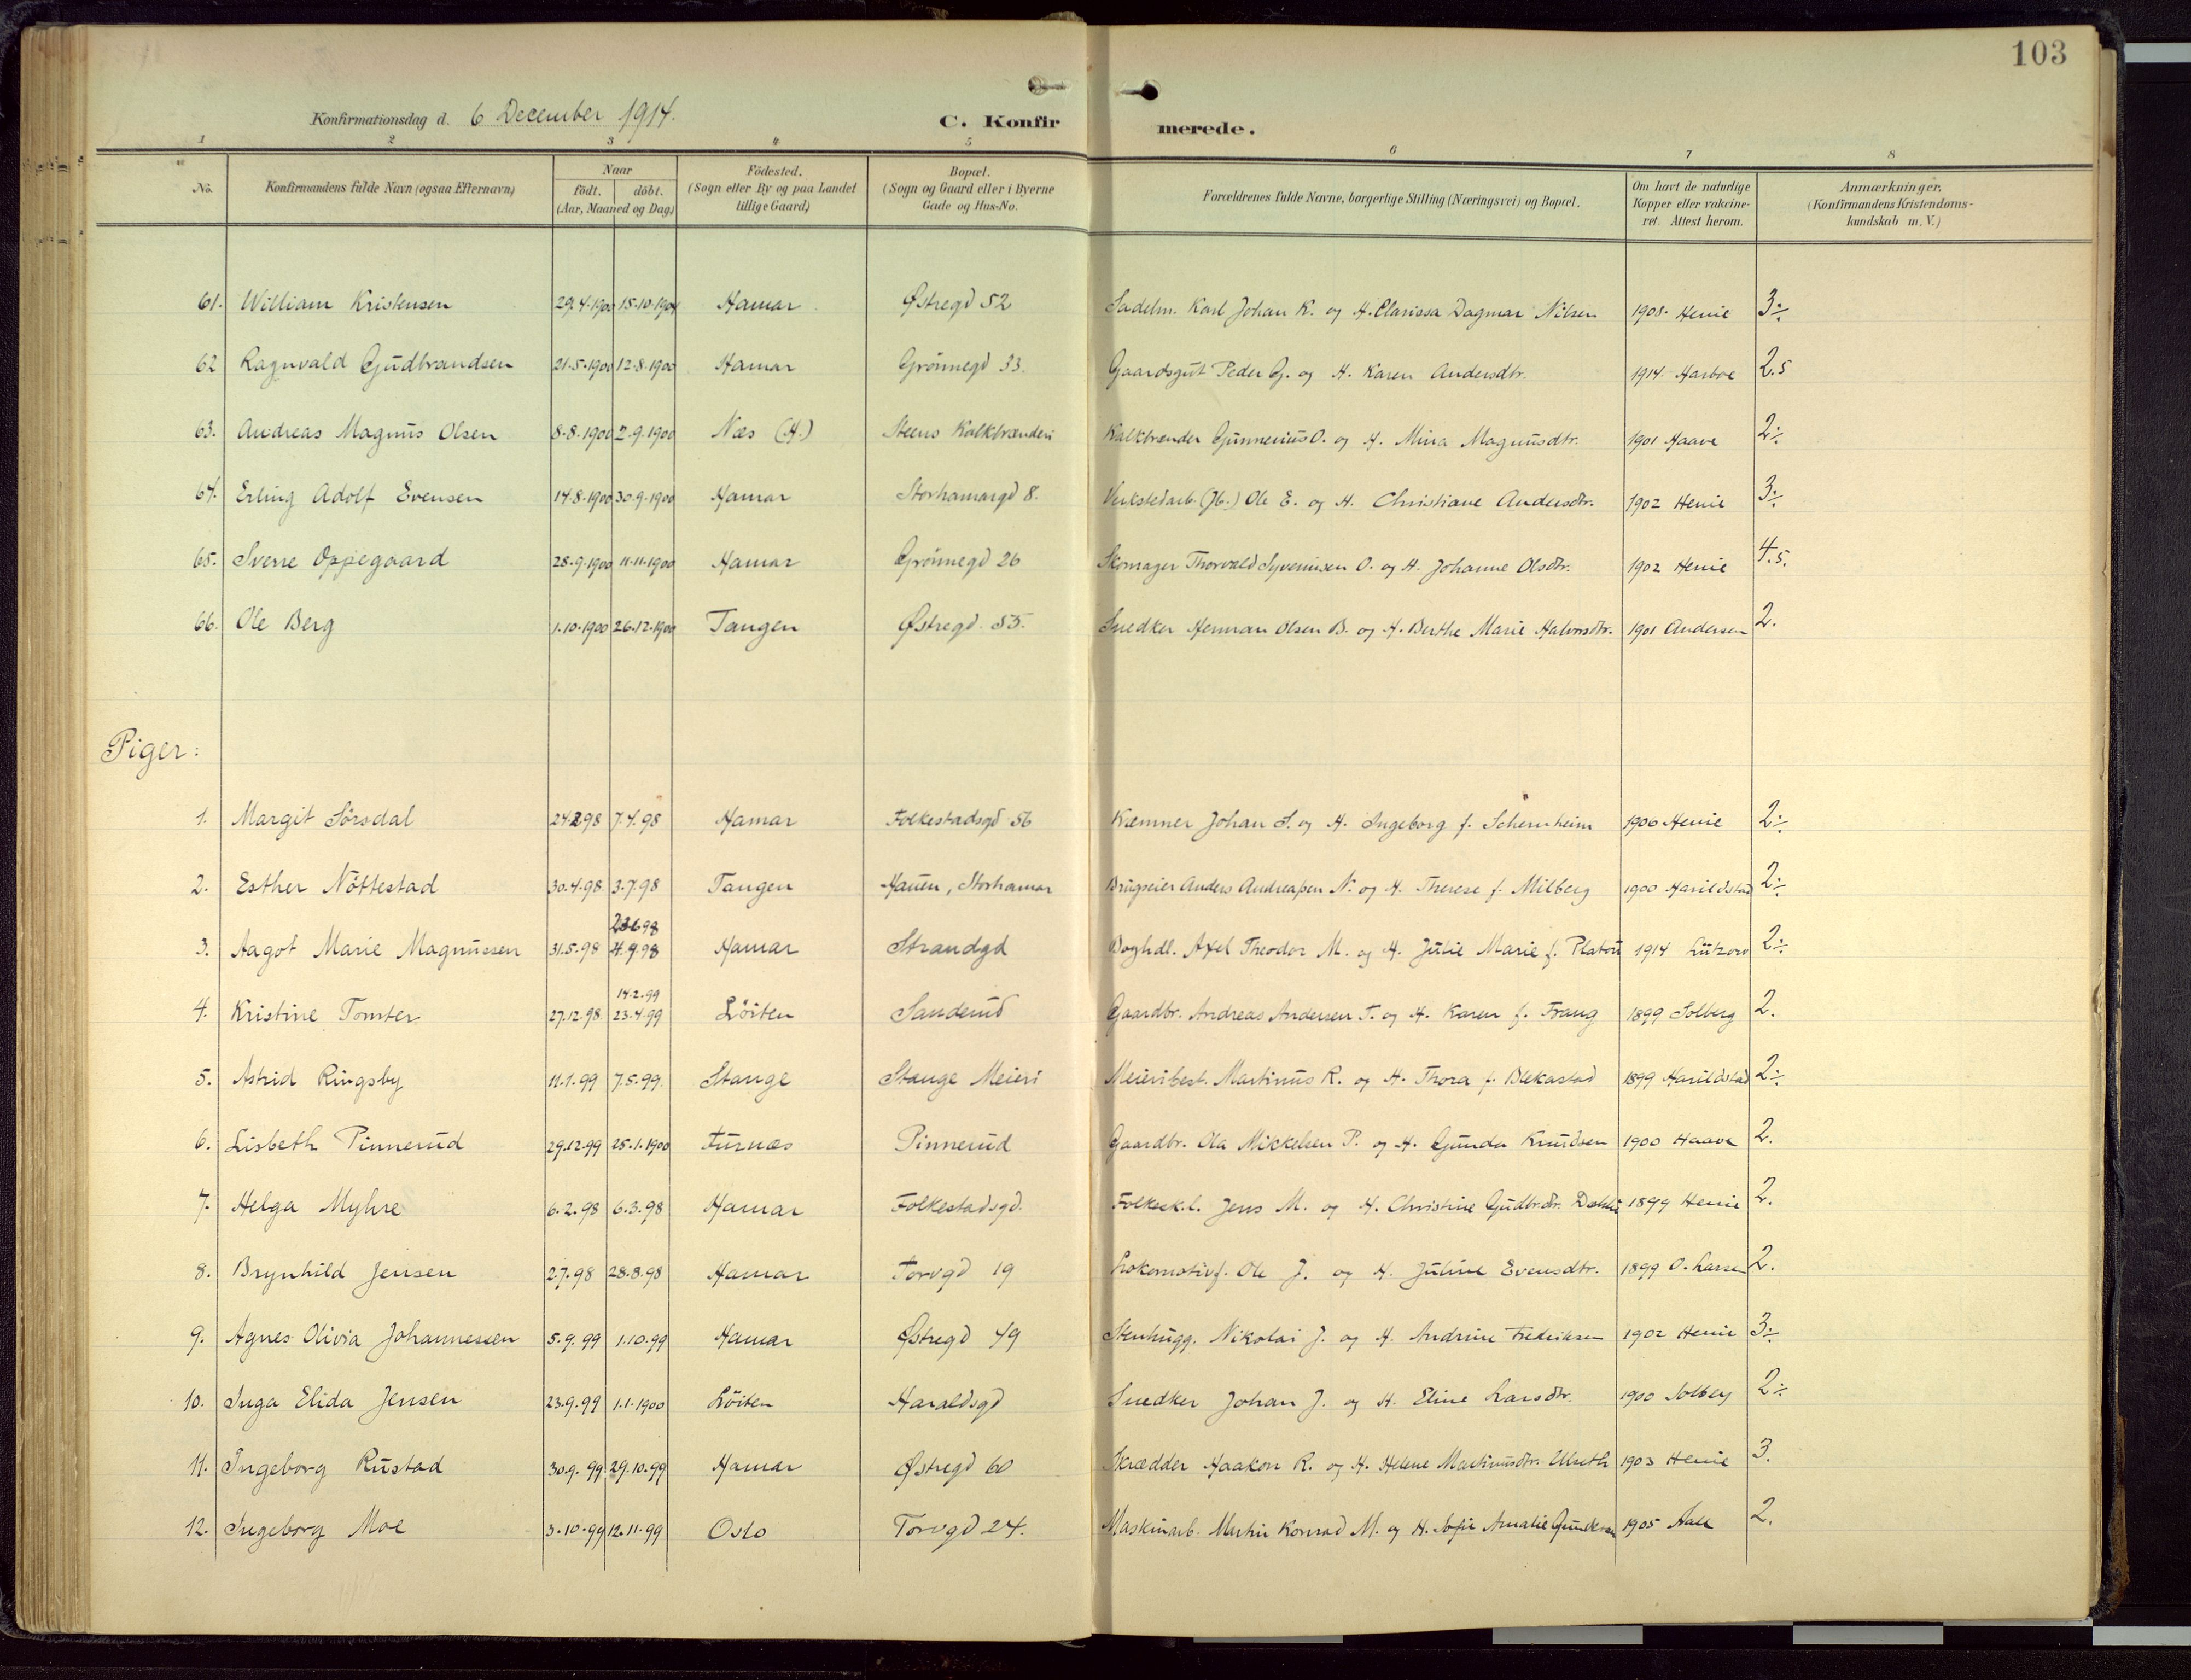 103
Konfirmationsdag d. 6 December 1914.
C. Konfirmerede.
1 2 3 4 5 6 7 8
No. Konfirmandens fulde Navn (ogsaa Efternavn) Naar födt. döbt. (Aar, Maaned og Dag) Födested. (Sogn eller By og paa Landet tillige Gaard) Bopæl. (Sogn og Gaard eller i Byerne Gade og Hus-No. Forældrenes fulde Navne, borgerlige Stilling (Næringsvei) og Bopæl. Om havt de naturlige Kopper eller vakcineret. Attest herom. Anmærkninger. (Konfirmandens Kristendomskundskab m. V.)
61. William Kristensen 29.4.1900 15.10.1904 Hamar Østregd 52 Sadelm. Karl Johan K. og H. Clarissa Dagmar Nilsen 1908. Henie 3÷
62 Ragnvald Gudbrandsen 21.5.1900 12.8.1900 Hamar Grönnegd 33. Gaardsgut Peder G. og H. Karen Andersdtr. 1914. Harboe 2.5
63. Andreas Magnus Olsen 8.8.1900 2.9.1900 Næs (H.) Steens Kalkbrænderi Kalkbrænder Gunnerius O. og H. Mina Magnusdtr. 1901 Haave 2÷
64. Erling Adolf Evensen 14.8.1900 30.9.1900 Hamar Storhamargd 8. Verkstedarb. (Jb.) Ole E. og H. Christiane Andersdtr. 1902 Henie 3÷
65. Sverre Oppegaard 28.9.1900 11.11.1900 Hamar Grönnegd 26 Skomager Thorvald Syvernisen O. og H. Johanne Olsdtr. 1902 Henie 4.5.
66. Ole Berg 1.10.1900 26.12.1900 Tangen Østregd. 55. Snedker Herman Olsen B. og H. Berthe Marie Halvorsdtr. 1901 Andersen 2.
Piger:
1. Margit Sörsdal 24.2.98 7.4.98 Hamar Folkestadsgd 56 Kæmner Johan S. og H. Ingeborg f. Schernheim 1906 Henie 2÷
2. Esther Nöttestad 30.4.98 3.7.98 Tangen Hauen, Storhamar Brugseier Anders Andreassen N. og H. Therese f. Milberg 1900 Harildstad 2÷
3. Aagot Marie Magnussen 31.5.98 23.6.98 4.9.98 Hamar Strandgd Boghdl. Axel Theodor M. og H. Julie Marie f. Platou 1914 Lützow 2÷
4. Kristine Tomter 27.12.98 14.2.99 23.4.99 Löiten Sanderud Gaardbr. Andreas Andersen T. og H. Karen f. Frang 1899 Solberg 2.
5. Astrid Ringsby 11.1.99 7.5.99. Stange Stange Meieri Meieribest. Martinus R. og H. Thora f. Blekastad 1899 Harildstad 2÷
6. Lisbeth Pinnerud 29.12.99 25.1.1900 Furnæs Pinnerud Gaardbr. Ola Mikkelsen P. og H. Gunda Knudsen 1900 Haave 2.
7. Helga Myhre 6.2.98 6.3.98 Hamar Folkestadsgd. Folkesk.l. Jens M. og H. Christine Gudbr.dtr. 1899 Henie 2.
8. Brynhild Jensen 2.7.98 28.8.98 Hamar Torvgd 19 Lokomotivf. Ole J. og H. Juline Evensdtr. 1899 O. Larsen 2.
9. Agnes Olivia Johannessen 5.9.99 1.10.99 Hamar Østregd 49 Stenhugg. Nikolai J. og H. Andrine Fredriksen 1902 Henie 3÷
10. Inga Elida Jensen 23.9.99 1.1.1900 Löiten Haraldsgd Snedker Johan J. og H. Eline Larsdtr. 1900 Solberg 2÷
11. Ingeborg Rustad 30.9.99 29.10.99 Hamar Østregd 60 Skrædder Haakon R. og H. Helene Martinusdtr. 1903 Henie 3.
12. Ingeborg Moe 3.10.99 12.11.99 Oslo Torvgd 24. Maskinarb. Martin Konrad M. og H. Sofie Amalie Gundersen 1905 2.